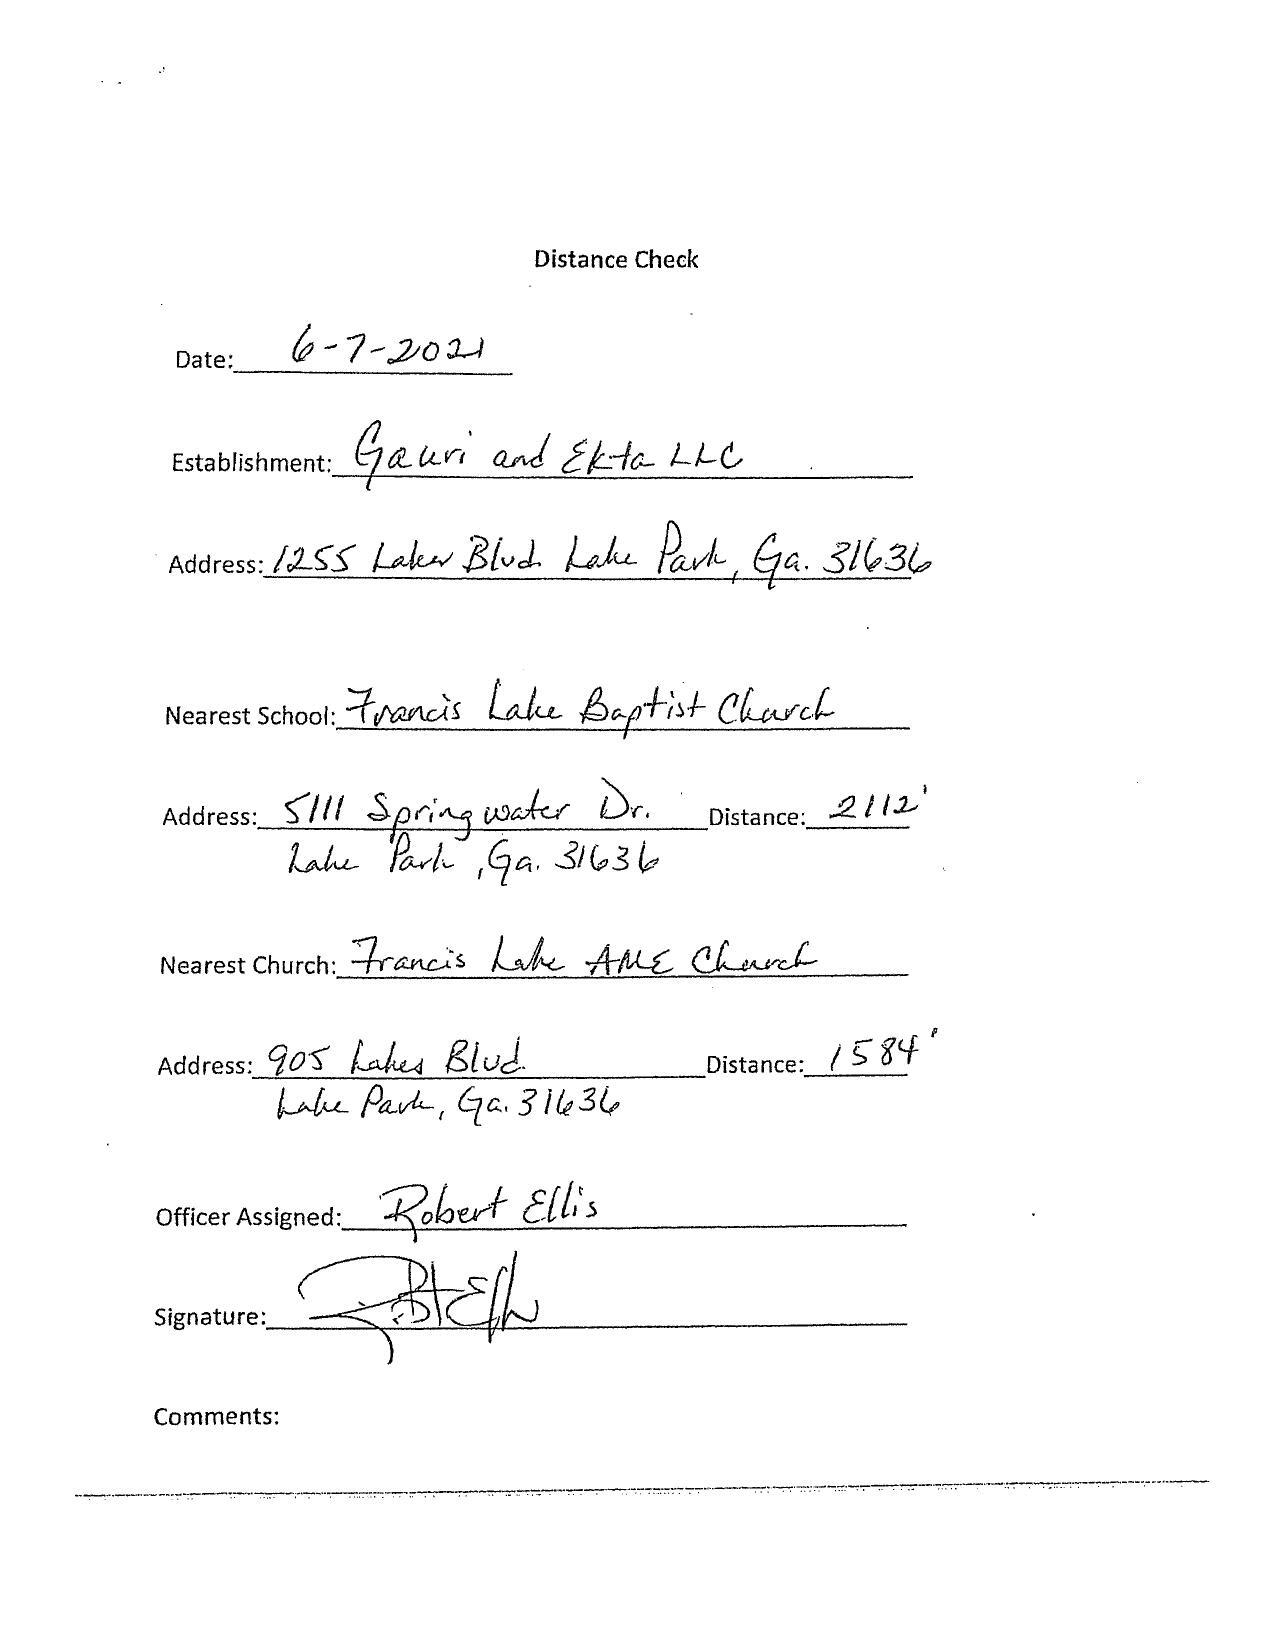 Distance Check
Date: 6-7-2021
Establishment: Gauri and Ekta LLC
Address: 1255 Lakes Blvd. Lake Park, Ga. 31636
Nearest School: Francis Lake Baptist Church
Address: 5111 Springwater Dr. Distance: 2112'
Lake Park, Ga. 31636
Nearest Church: Francis Lake AME Church
Address: 905 Lakes Blvd. Distance: 1584'
Lake Park, Ga. 31636
Officer Assigned: Robert Ellis
Signature:
Comments: